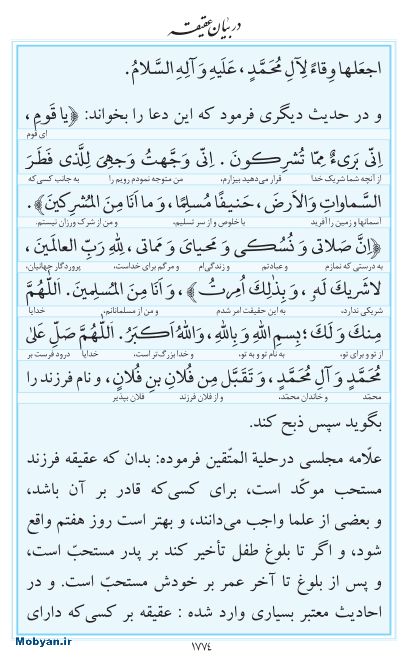 در بیان عقیقه
اجعَلها وِقاءً لِآلِ مُحَمَّدٍ، عَلَیهِ وَ آلِهِ السَّلامُ.
و در حدیث دیگری فرمود که این دعا را بخواند: ﴿یا قَومِ،
ای قوم
اِنّی بَریءٌ مِمّا تُشرِکونَ. اِنّی وَجَّهتُ وَجهِیَ لِلَّذی فَطَرَ
از آنچه شما شریک خدا قرار می‌دهید بیزارم، من متوجه نمودم رویم را به جانب کسی‌که
السَّماواتِ وَالاَرضَ، حَنیفًا مُسلِمًا، وَ ما اَنَا مِنَ المُشرِکینَ﴾.
آسمانها و زمین را آفرید با خلوص و از سر تسلیم، و من از شرک ورزان نیستم.
﴿اِنَّ صَلاتی وَ نُسُکی وَ مَحیایَ وَ مَماتی، لِلّٰهِ رَبِّ العالَمینَ،
به درستی که نمازم و عبادتم و زندگی‌ام و مرگم برای خداست، پروردگار جهانیان،
لاشَریكَ لَهُ، وَ بِذٰلِكَ اُمِرتُ﴾، وَ اَنَا مِنَ المُسلِمینَ. اَللّٰهُمَّ
شریکی ندارد، به این حقیقت امر شدم و من از مسلمانانم، خدایا
مِنكَ وَ لَكَ؛ بِسمِ اللّٰهِ وَ بِاللّٰهِ، وَاللّٰهُ اَکبَرُ. اَللّٰهُمَّ صَلِّ عَلیٰ
از تو و برای تو، به نام تو و به تو، و خدا بزرگ‌تر است، خدایا درود فرست بر
مُحَمَّدٍ وَ آلِ مُحَمَّدٍ، وَ تَقَبَّل مِن فُلانِ بنِ فُلانٍ، و نام فرزند را
محمّد و خاندان محمّد، و از فلان فرزند فلان بپذیر
بگوید سپس ذبح کند.
علّامه مجلسی درحلیة المتّقین فرموده: بدان که عقیقه فرزند
مستحب موکّد است، برای کسی‌که قادر بر آن باشد،
و بعضی از علما واجب می‌دانند، و بهتر است روز هفتم واقع
شود، و اگر تا بلوغ طفل تأخیر کند بر پدر مستحبّ است،
و پس از بلوغ تا آخر عمر بر خودش مستحبّ است. و در
احادیث معتبر بسیاری وارد شده : عقیقه بر کسی‌که دارای
۱۷۷۴
Mobyan.ir